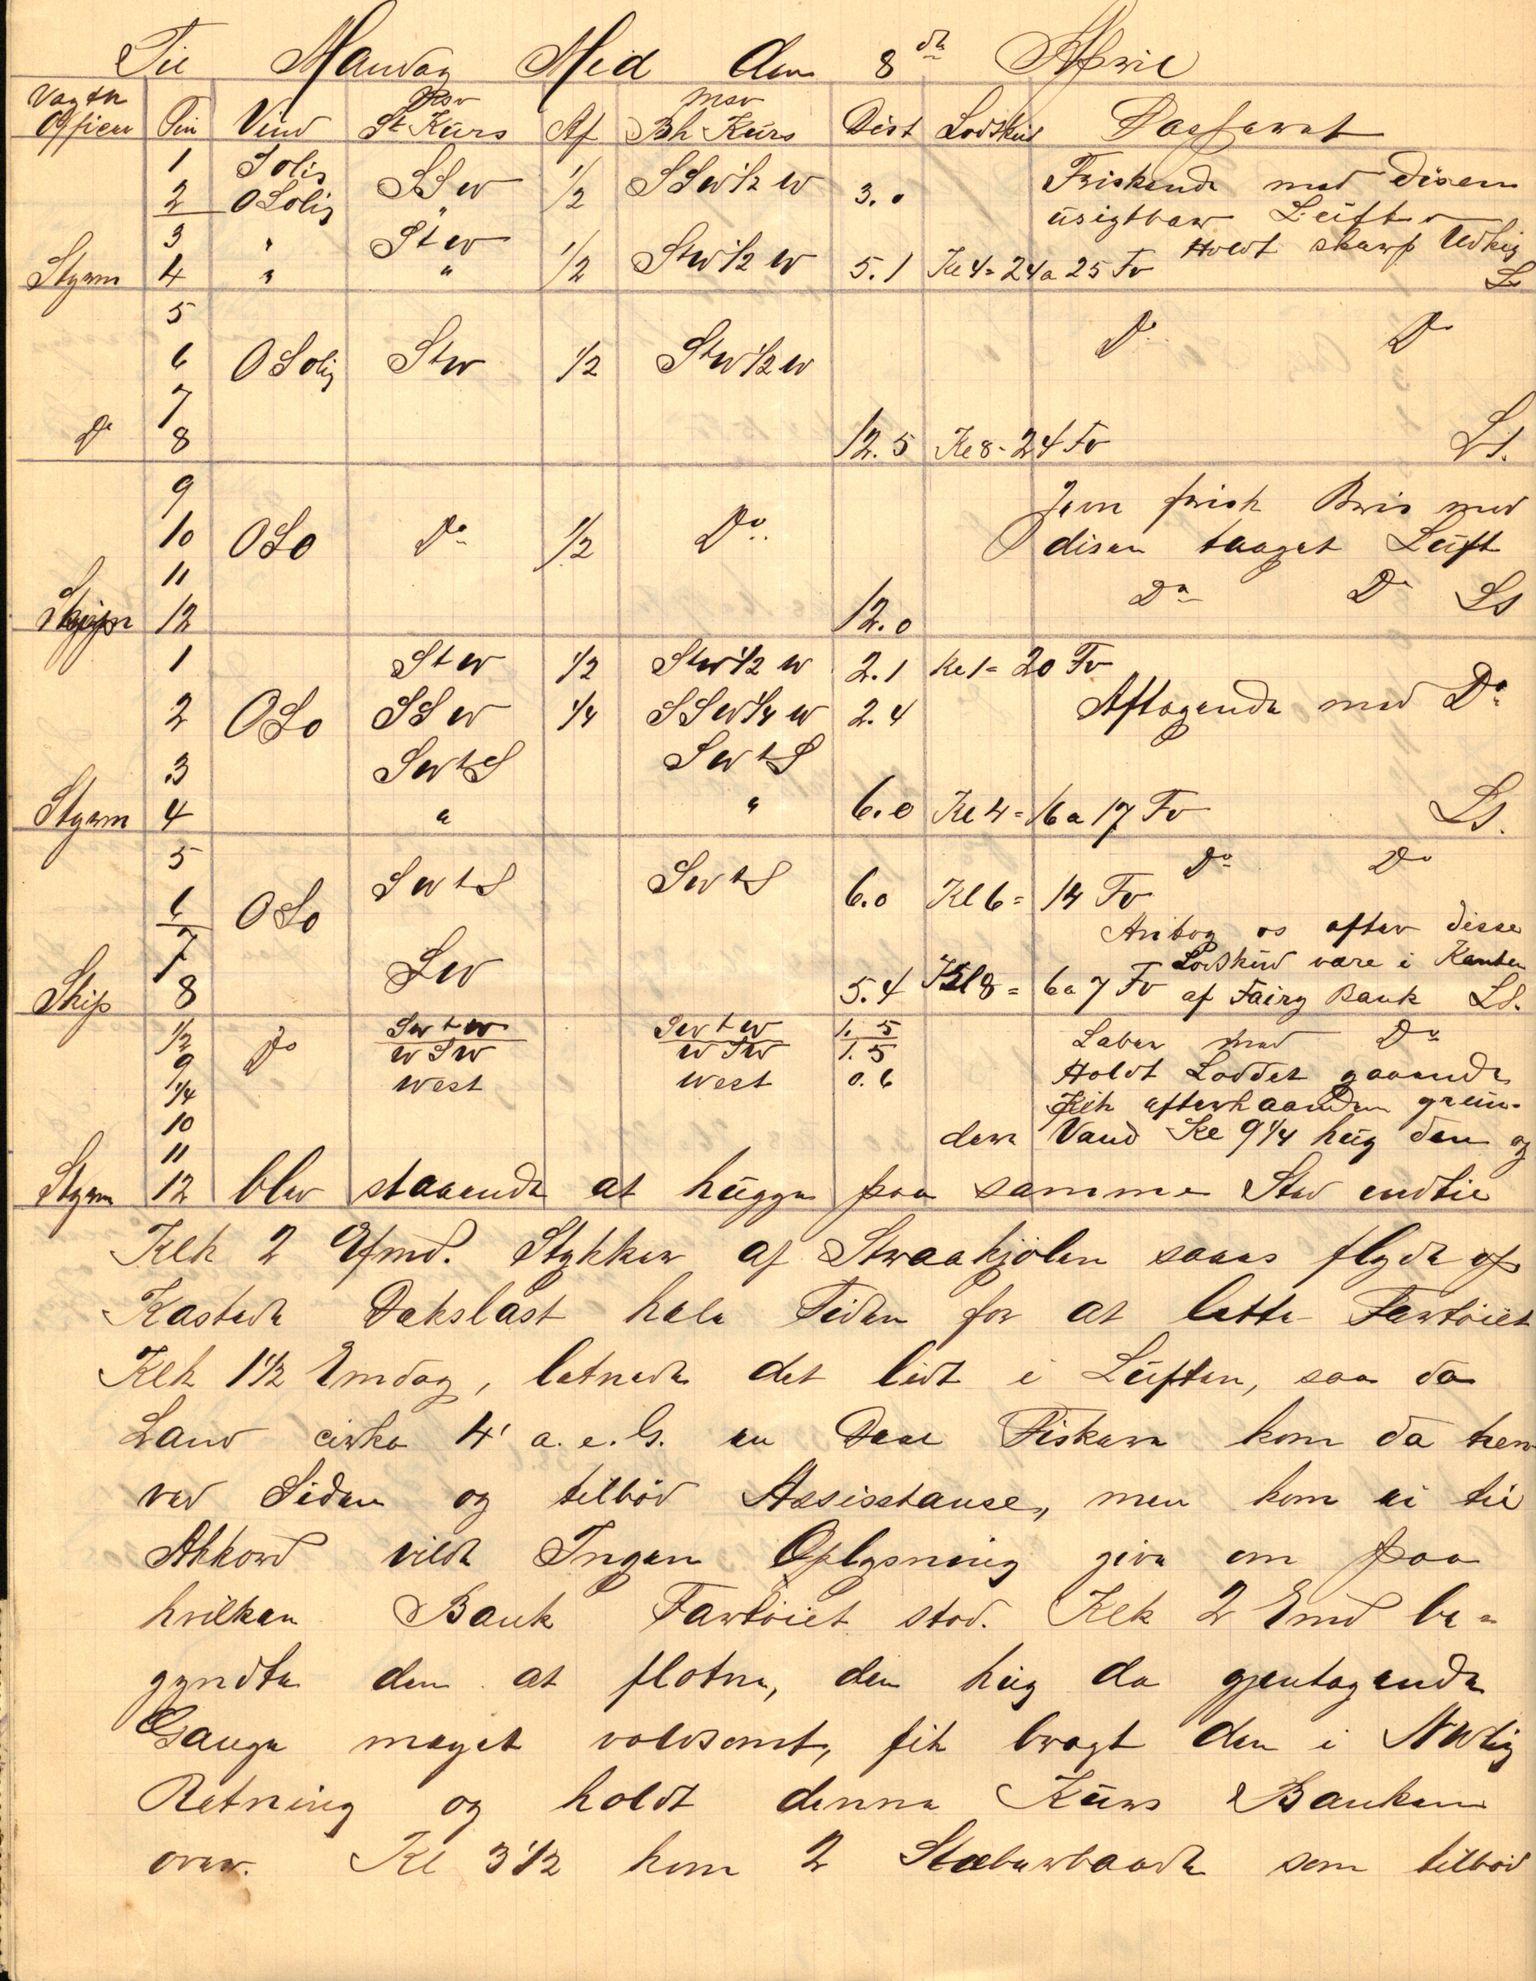 Til Mandag Mid den 8de April
Vagth. Officer | Tim | Vind | msv St Kurs | Af | msv Bh Kurs | Dist | Lodskud | Passerat
1 Solig SSW 1/2 SSW 1/2 W Friskende med disen
2 OSolig " 3.0 usigtbar Luft
3 " StW Holdt skarp Udkig
Styrm 4 " " 1/2 StW 1/2 W 5.1 Kl 4 = 24 a 25 Fv Ls
5 Do Do
6 OSolig StW 1/2 StW 1/2 W
7
Do 8 12.5 Kl 8 = 24 Fv Ls.
9 Jevn frisk Bris med
10 OSo Do 1/2 Do disen taaget Luft
11 Do Do Ls
Skipr 12 12.0
1 StW 1/2 StW 1/2 W 2.1 Kl 1 = 20 Fv
2 OSo SSW 1/4 SSW 1/4 W 2.4 Aftagende med Do
3 SWtS SWtS
Styrm 4 " " 6.0 Kl 4 = 16 a 17 Fv Ls.
5 Do Do
6 OSo SWtS SWtS 6.0 Kl 6 = 14 Fv
7 SW Antog os efter disse
Lodskud være i Kanten
Skip 8 5.4 Kl 8 = 6 a 7 Fv af Fairy Bank Ls.
1/2 Do SWtW SWtW 1.5 Laber med Do
9 WSW WSW 1.5 Holdt Loddet gaaende
1/4 West West 0.6 Fik efterhaanden grun-
10 dere Vand Kl 9 1/4 hug den og
11
Styrm 12 blev staaende at hugge paa samme Sted indtil
Klk 2 Efmd. Stykker af Straakjølen saaes flyde op
Kastede Dækslast hele Tiden for at lette Fartøiet
Klk 1 1/2 Emdag, letnede det lidt i Luften, saa da
Land cirka 4' a.e.G. en Deel Fiskere kom da hen
ved Siden og tilbød Assisstanse, men kom ei til
Akkord vilde Ingen Oplysning give om paa
hvilken Bank Fartøiet stod. Klk 2 Emd be-
gyndte den at flotne, den hug da gjentagende
Gange meget voldsomt, fik bragt den i NWlig
Retning og holdt denne Kurs Banken
over. Kl 3 1/2 kom 2 Slæberbaade som tilbød